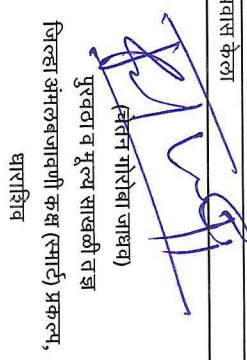 वास केला
(चेतन गोरोबा जाधव)
पुरवठा व मूल्य साखळी तज्ञ
जिल्हा अंमलबजावणी कक्ष (स्मार्ट) प्रकल्प,
धाराशिव